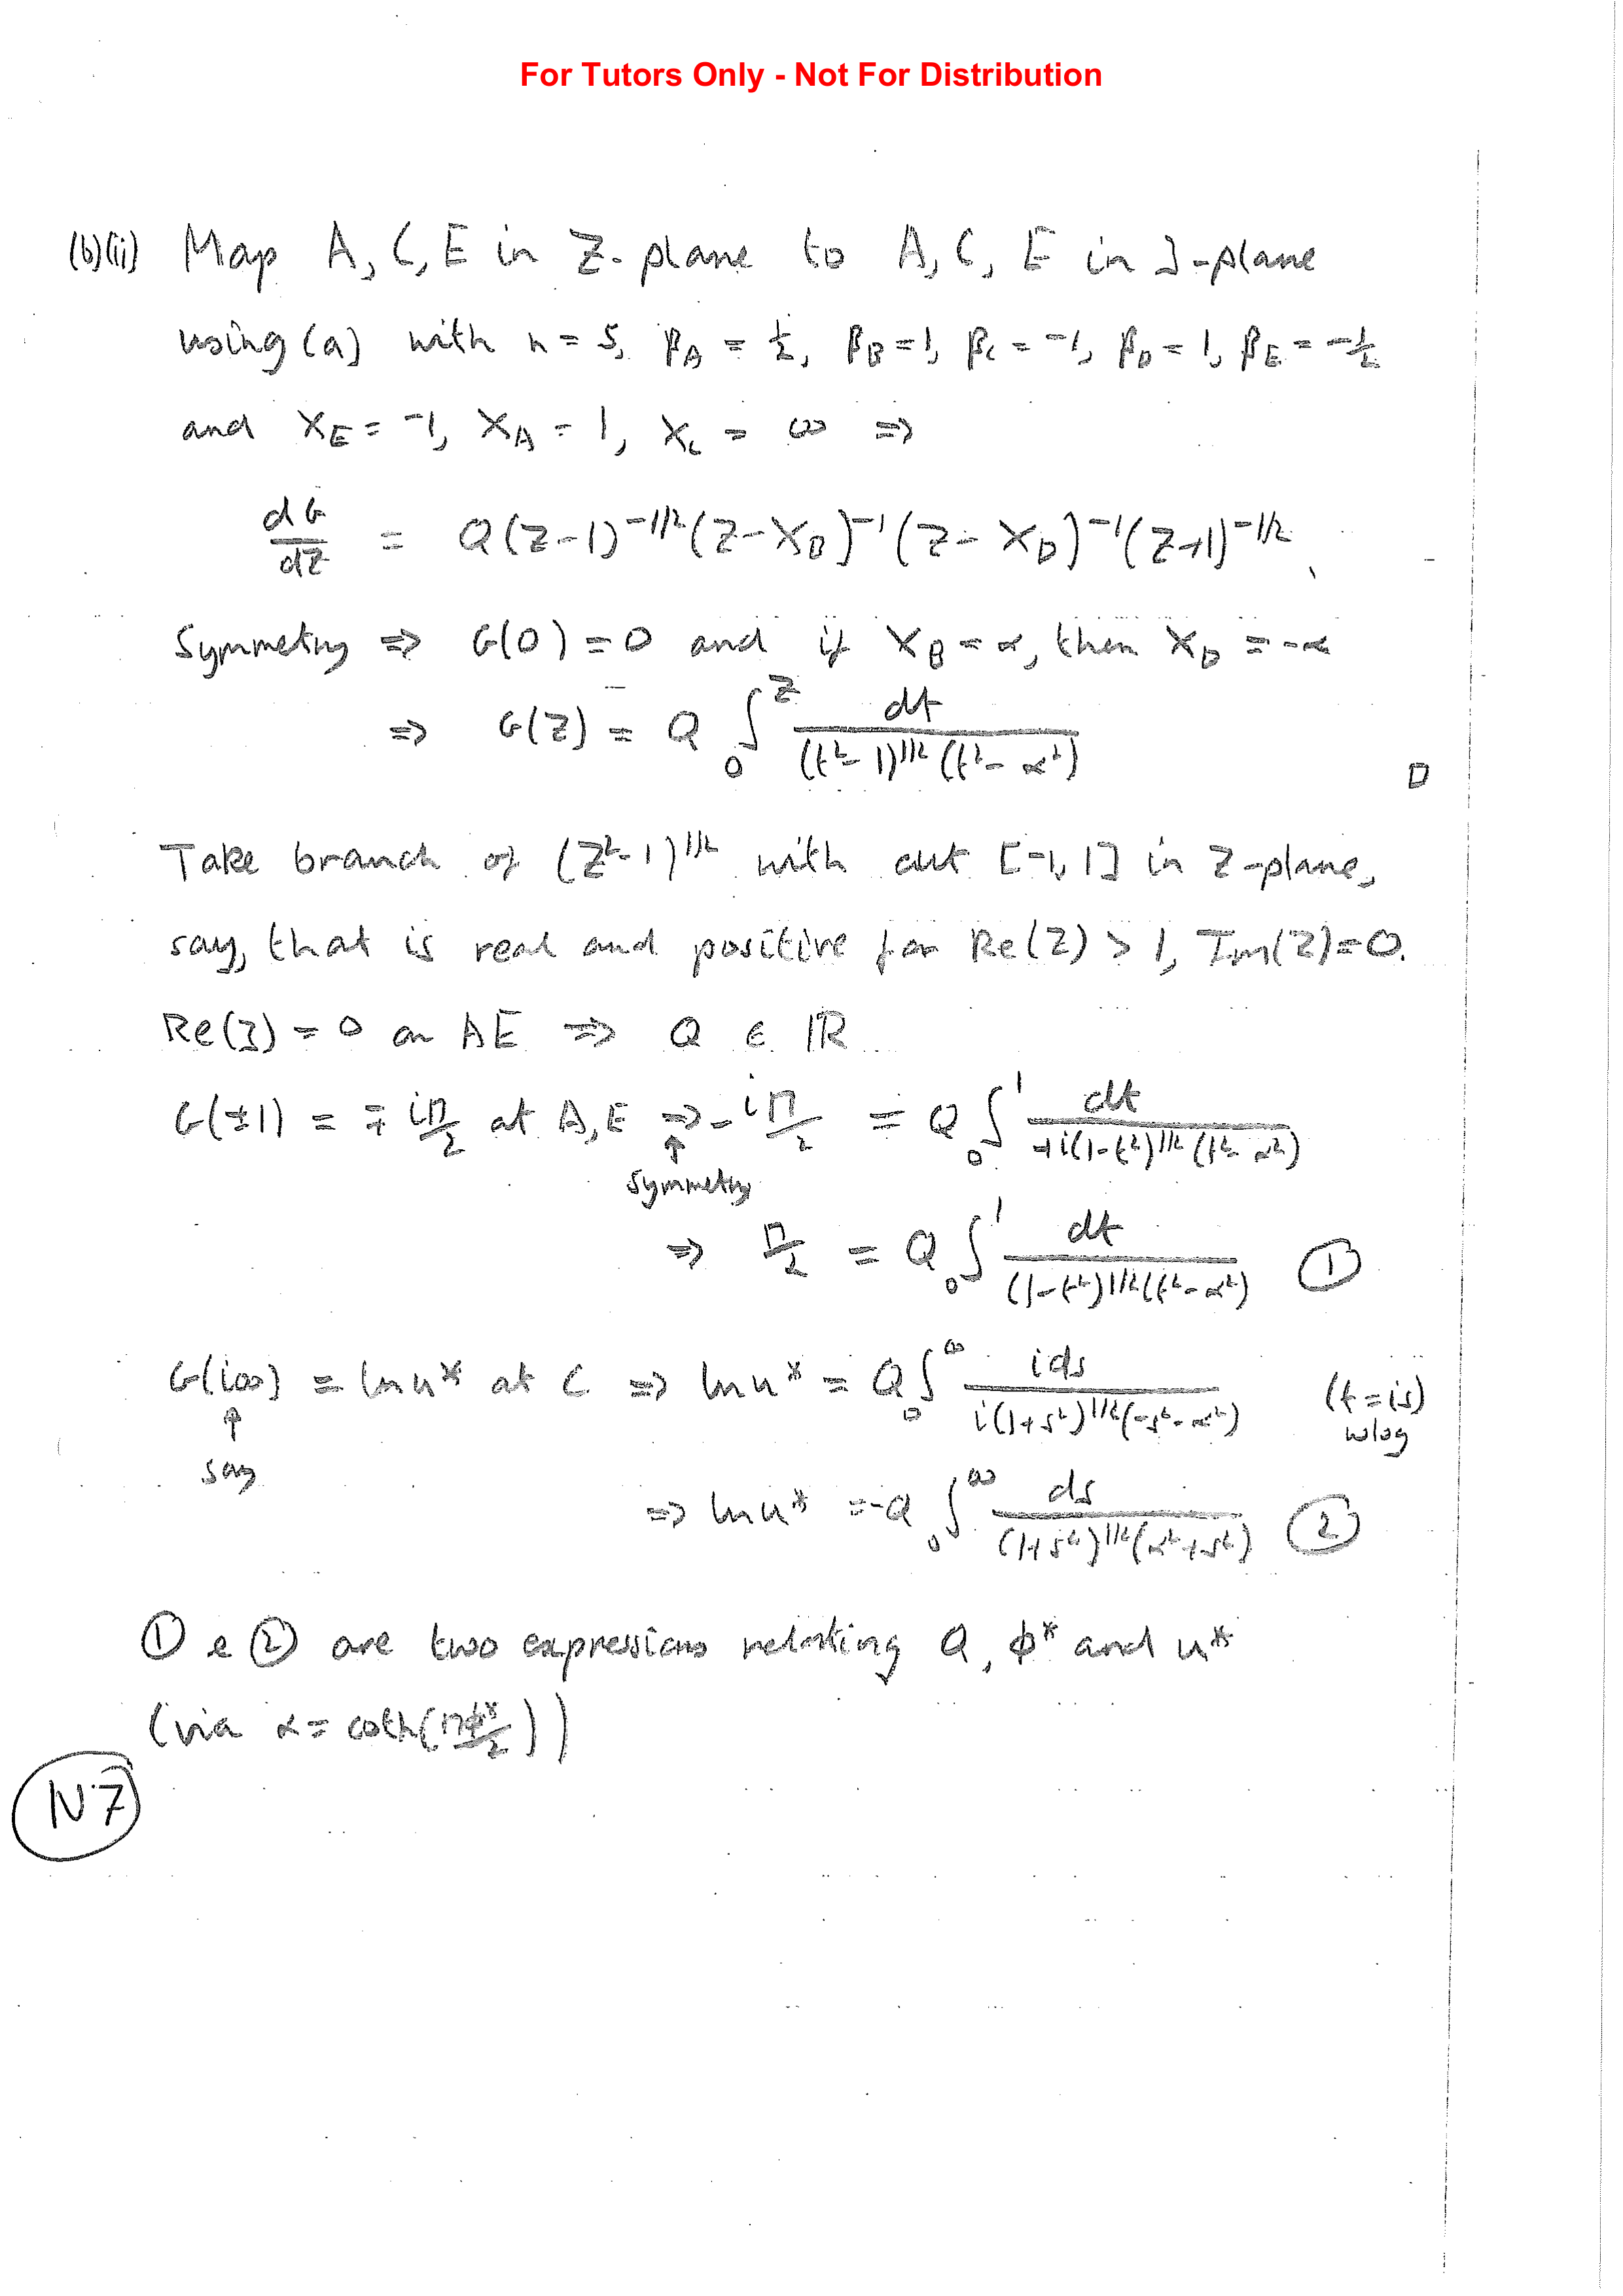 For Tutors Only - Not For Distribution
(b)(ii) Map A, C, E in Z-plane to A, C, E in ζ-plane
using (a) with n = 5, β_A = 1/2, β_B = 1, β_C = -1, β_D = 1, β_E = -1/2
and X_E = -1, X_A = 1, X_C = ∞ ⇒
dG/dZ = Q(Z-1)^{-1/2}(Z-X_B)^{-1}(Z-X_D)^{-1}(Z+1)^{-1/2}.
Symmetry ⇒ G(0) = 0 and if X_B = α, then X_D = -α
⇒ G(Z) = Q ∫_0^Z dt / ((t²-1)^{1/2}(t²-α²))
□
Take branch of (Z²-1)^{1/2} with cut [-1,1] in Z-plane,
say, that is real and positive for Re(Z) > 1, Im(Z)=0.
Re(ζ) = 0 on AE ⇒ Q ∈ ℝ
G(±1) = ∓ iπ/2 at A, E ⇒ -iπ/2 = Q ∫_0^1 dt / (+i(1-t²)^{1/2}(t²-α²))
↑
Symmetry
⇒ π/2 = Q ∫_0^1 dt / ((1-t²)^{1/2}(t²-α²)) ①
G(i∞) = ln u* at C ⇒ ln u* = Q ∫_0^∞ i ds / (i(1+s²)^{1/2}(-s²-α²)) (t = is)
↑ wlog
say
⇒ ln u* = -Q ∫_0^∞ ds / ((1+s²)^{1/2}(α²+s²)) ②
① & ② are two expressions relating Q, φ* and u*
(via α = coth(πφ*/2))
N7